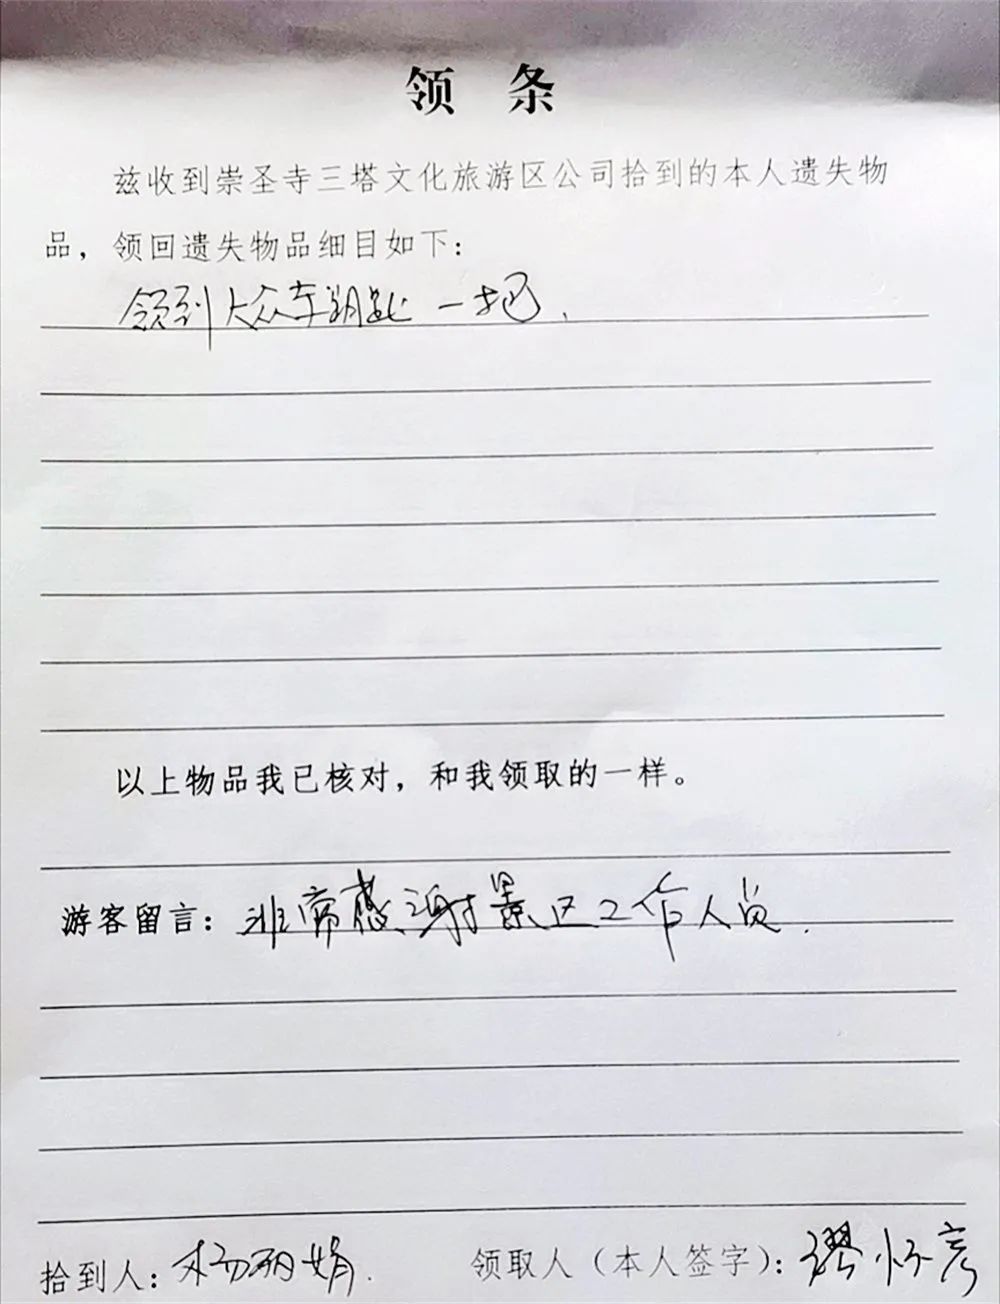 领 条
兹收到崇圣寺三塔文化旅游区公司拾到的本人遗失物
品，领回遗失物品细目如下：
领到大众车钥匙一把.
以上物品我已核对，和我领取的一样。
游客留言：非常感谢景区工作人员.
拾到人：杨丽娟. 领取人（本人签字）：缪怀彦